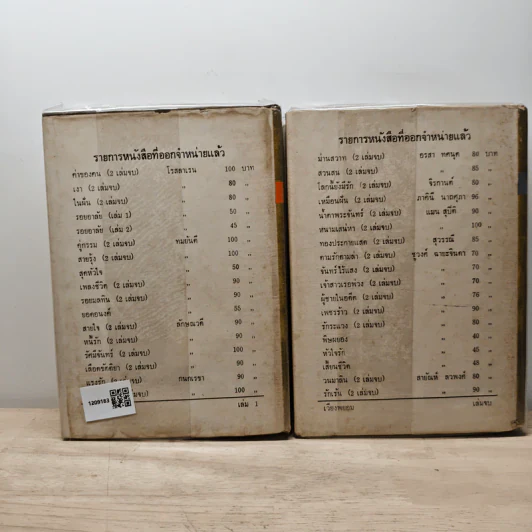 รายการหนังสือที่ออกจำหน่ายแล้ว
ค่าของคน (2 เล่มจบ) โรสลาเรน 100 บาท
เงา (2 เล่มจบ) " 80 "
ในฝัน (2 เล่มจบ) " 80 "
รอยอาลัย (เล่ม 1) " 50 "
รอยอาลัย (เล่ม 2) " 45 "
คู่กรรม (2 เล่มจบ) ทมยันตี 100 "
สายรุ้ง (2 เล่มจบ) " 100 "
สุดหัวใจ " 50 "
เพลงชีวิต (2 เล่มจบ) " 90 "
รอยมลทิน (2 เล่มจบ) " 90 "
ยอดอนงค์ " 55 "
สายใจ (2 เล่มจบ) ลักษณวดี 90 "
หนี้รัก (2 เล่มจบ) " 90 "
รัศมีจันทร์ (2 เล่มจบ) " 100 "
เลือดขัตติยา (2 เล่มจบ) " 90 "
แรงรัก (2 เล่มจบ) กนกเรขา 90 "
เล่มจบ) " 100 "
เล่ม 1
1209183
รายการหนังสือที่ออกจำหน่ายแล้ว
ม่านสวาท (2 เล่มจบ) อรสร 80 บาท
สวนสน (2 เล่มจบ) " 85 "
โลกนี้ยังมีรัก (2 เล่มจบ) จิรกานต์ 80 "
เหมือนฝัน (2 เล่มจบ) ภาคินี 96 "
น้ำตาพระจันทร์ (2 เล่มจบ) แมน สุปิติ 90 "
หนามเสน่หา (2 เล่มจบ) " 100 "
ทองประกายแสด (2 เล่มจบ) สุวรรณี 85 "
ตามรักตามล่า (2 เล่มจบ) ชูวงศ์ ฉายะจินดา 70 "
จันทร์ไร้แสง (2 เล่มจบ) " 70 "
เจ้าสาวเรือพ่วง (2 เล่มจบ) " 70 "
ผู้ชายในอดีต (2 เล่มจบ) " 75 "
เพชรร้าว (2 เล่มจบ) " 90 "
รักระแวง (2 เล่มจบ) " 80 "
พิษผยอง " 45 "
หัวใจรัก " 45 "
เสี้ยนชีวิต " 48 "
วนมาลิน (2 เล่มจบ) 80 "
รักเร้น (2 เล่มจบ) " 90 "
เวียงพยอม เล่มจบ